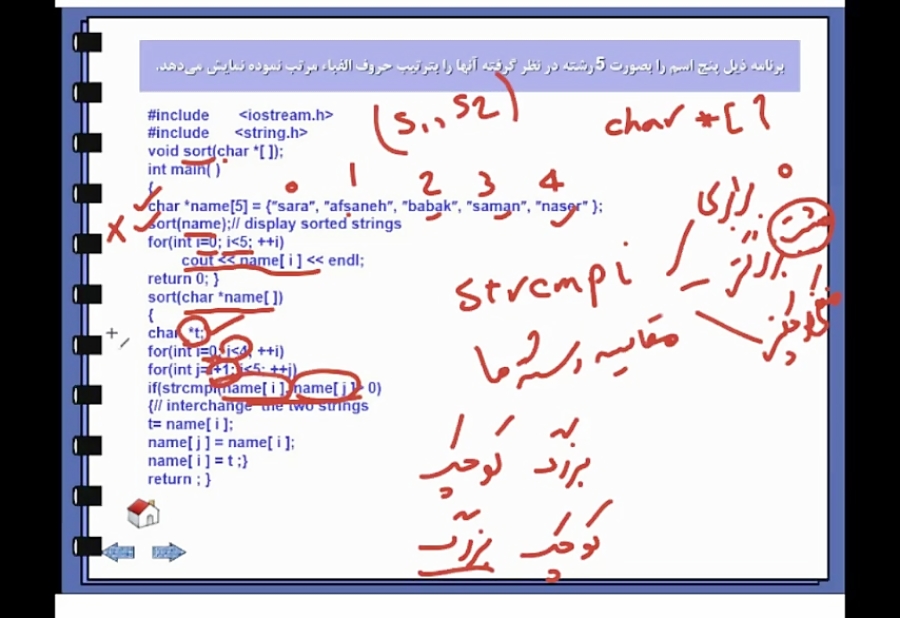 برنامه ذیل پنج اسم را بصورت 5 رشته در نظر گرفته آنها را بترتیب حروف الفباء مرتب نموده نمایش می‌دهد.
(s1, s2)
char *[ ]
#include <iostream.h>
#include <string.h>
void sort(char *[ ]);
int main( )
{
0 1 2 3 4
char *name[5] = {"sara", "afsaneh", "babak", "saman", "naser" };
sort(name);// display sorted strings
for(int i=0; i<5; ++i)
cout << name[ i ] << endl;
return 0; }
sort(char *name[ ])
{
char *t;
for(int i=0; i<4; ++i)
for(int j=i+1; j<5; ++j)
if(strcmpi(name[ i ], name[ j ]> 0)
{// interchange the two strings
t= name[ i ];
name[ j ] = name[ i ];
name[ i ] = t ;}
return ; }
strcmpi
0
مقایسه رشته ها
کوچک
کوچک بزرگ